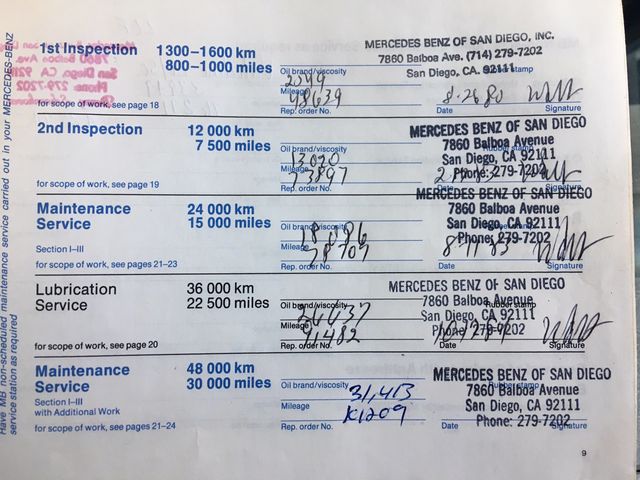 Have MB non-scheduled maintenance service carried out in your MERCEDES-BENZ
service station as required
1st Inspection 1300–1600 km
800–1000 miles
for scope of work, see page 18
Oil brand/viscosity
Mileage
98639
Rep. order No.
MERCEDES BENZ OF SAN DIEGO, INC.
7860 Balboa Ave. (714) 279-7202
San Diego, CA. 92111
8-26-80
Date
Signature
2nd Inspection 12 000 km
7 500 miles
for scope of work, see page 19
Oil brand/viscosity
13020
Mileage
73897
Rep. order No.
MERCEDES BENZ OF SAN DIEGO
7860 Balboa Avenue
San Diego, CA 92111
Phone: 279-7202
Date
Signature
Maintenance 24 000 km
Service 15 000 miles
Section I–III
for scope of work, see pages 21–23
Oil brand/viscosity
18886
Mileage
78707
Rep. order No.
MERCEDES BENZ OF SAN DIEGO
7860 Balboa Avenue
San Diego, CA 92111
Phone: 279-7202
Date
Signature
Lubrication 36 000 km
Service 22 500 miles
for scope of work, see page 20
Oil brand/viscosity
26637
Mileage
91482
Rep. order No.
MERCEDES BENZ OF SAN DIEGO
7860 Balboa Avenue
San Diego, CA 92111
Phone: 279-7202
Date
Signature
Maintenance 48 000 km
Service 30 000 miles
Section I–III
with Additional Work
for scope of work, see pages 21–24
Oil brand/viscosity
31,413
Mileage
K1209
Rep. order No.
MERCEDES BENZ OF SAN DIEGO
Rubber stamp
7860 Balboa Avenue
San Diego, CA 92111
Phone: 279-7202
Date
Signature
9